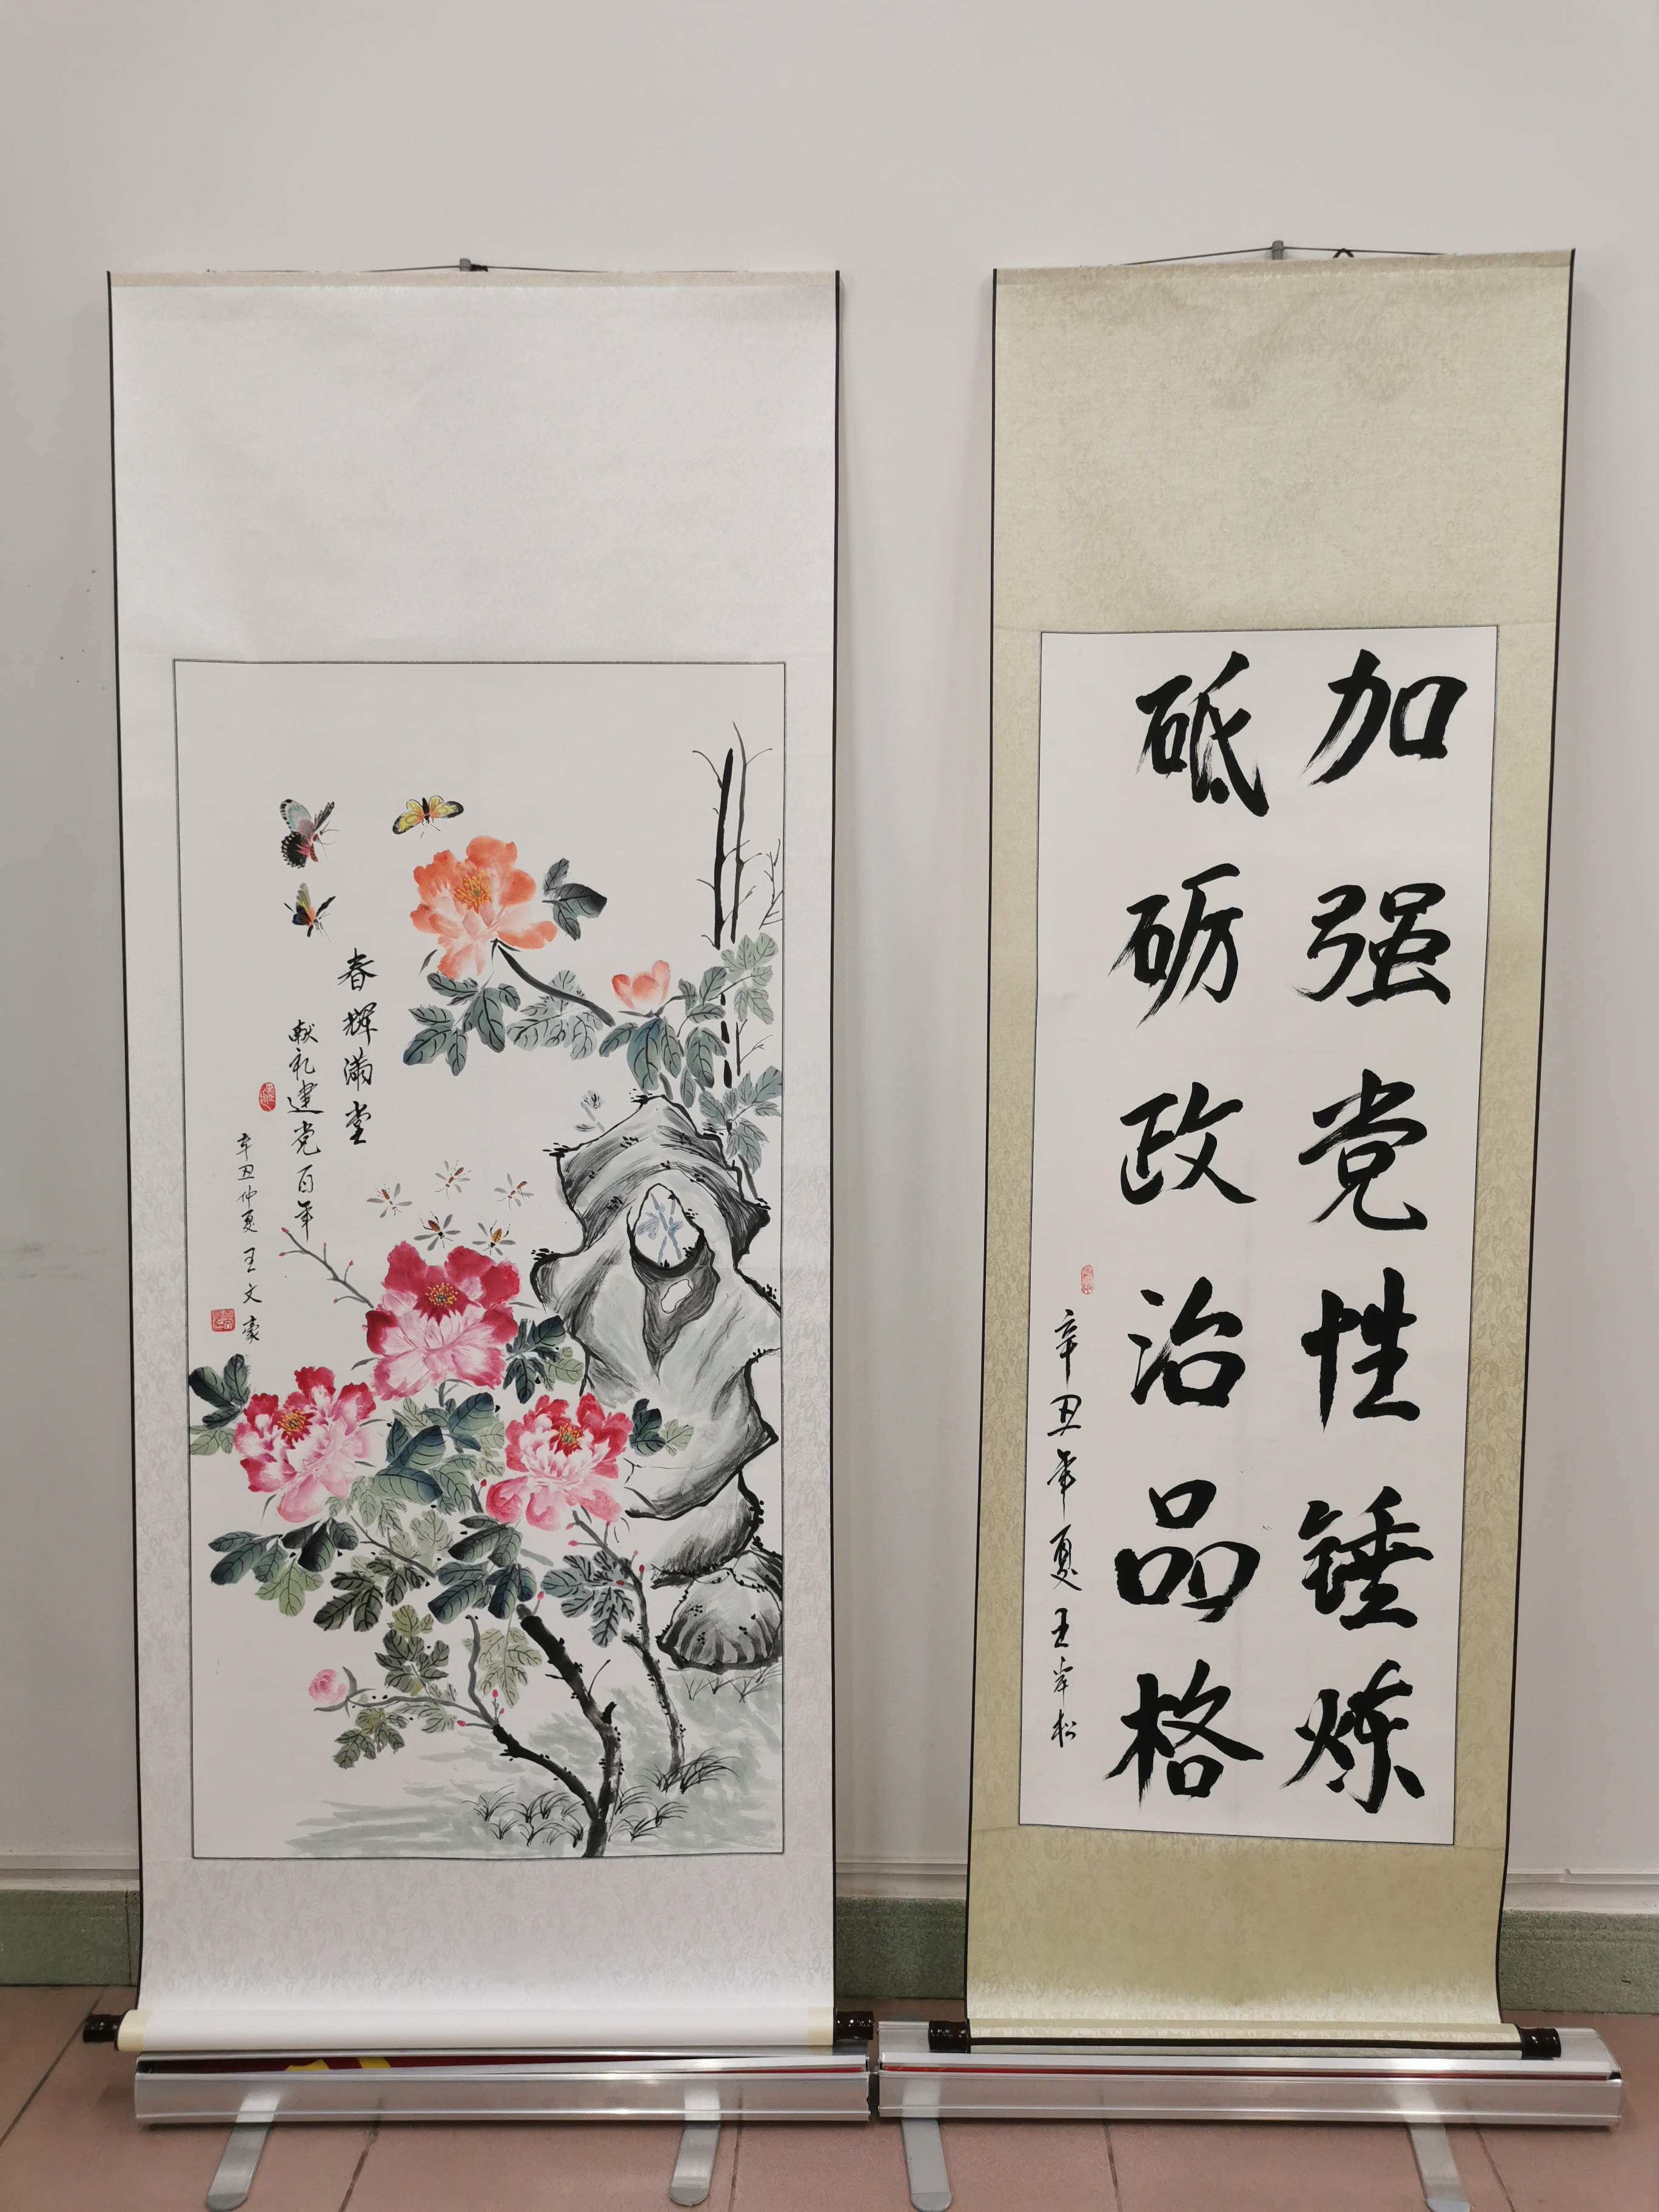 春辉满堂
献礼建党百年
辛丑仲夏王文豪
加强党性锤炼
砥砺政治品格
辛丑年夏王岸松